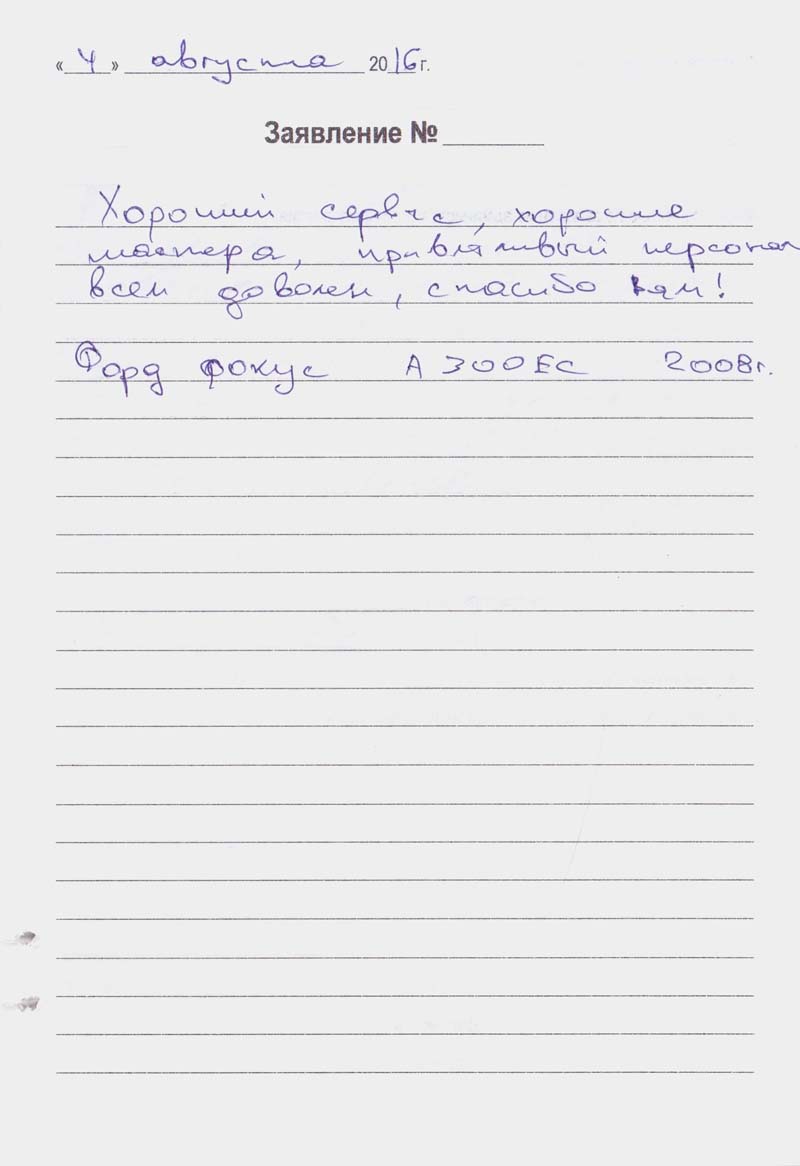 «4» августа 2016г.
Заявление № ______
Хороший сервис, хорошие
мастера, привлятивый персонал
всем доволен, спасибо вам!
Форд фокус А300ЕС 2008г.